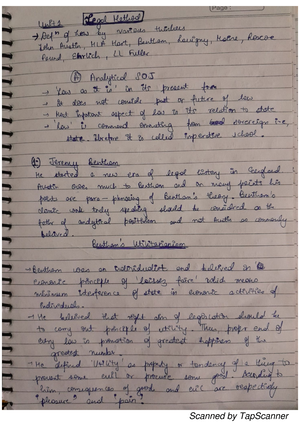 Page:
Unit 2 Legal Method
→ Defn of law by various thinkers
John Austin, HLA Hart, Bentham, Savigny, Maine, Roscoe
Pound, Ehrlich, LL Fuller
(A) Analytical SOJ
→ 'Law as it is' in its present form
→ It does not consider past or future of law
→ Most important aspect of law is its relation to state
→ 'Law' is command emanating from sovereign i.e,
state. therefore it is called imperative school.
Jeremy Bentham
He started a new era of legal history in England.
Austin owes much to Bentham and on many points his
parts are para-phrasing of Bentham's theory. Bentham's
work truly speaking should be considered as the
father of analytical positivism and not Austin as commonly
believed.
Bentham's Utilitarianism
→ Bentham was an individualist and believed in
economic principle of 'laissez faire' which means
minimum interference of state in economic activities of
individuals.
→ He believed that right aim of legislation should be
to carry out principle of utility. Thus, proper end of
every law is promotion of greatest happiness of the
greatest number.
→ He defined 'Utility' as property or tendency of a thing to
prevent some evil or procure some good. According to
him consequences of good and evil are respectively
"pleasure" and "pain".
Scanned by TapScanner